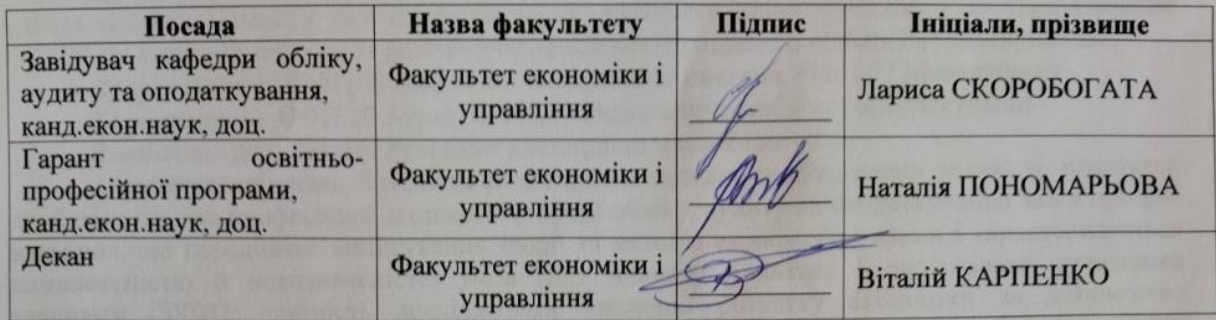 Посада Назва факультету Підпис Ініціали, прізвище
Завідувач кафедри обліку,
аудиту та оподаткування,
канд.екон.наук, доц.
Факультет економіки і
управління
Лариса СКОРОБОГАТА
Гарант освітньо-
професійної програми,
канд.екон.наук, доц.
Факультет економіки і
управління
Наталія ПОНОМАРЬОВА
Декан
Факультет економіки і
управління
Віталій КАРПЕНКО